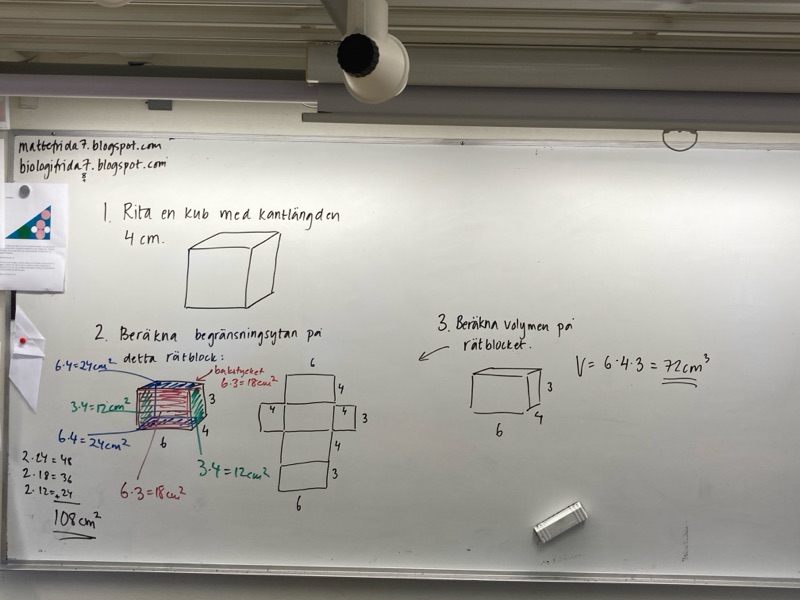 mattefrida7.blogspot.com
biologifrida7.blogspot.com
8
1. Rita en kub med kantlängden
4 cm.
2. Beräkna begränsningsytan på
detta rätblock:
6·4=24cm²
bakstycket
6·3=18cm²
3·4=12cm²
3
4
6
6·4=24cm²
3·4=12cm²
6·3=18cm²
2·24=48
2·18=36
2·12=+24
108cm²
6
4
4
4
3
4
3
6
3. Beräkna volymen på
rätblocket.
3
4
6
V = 6·4·3 = 72cm³